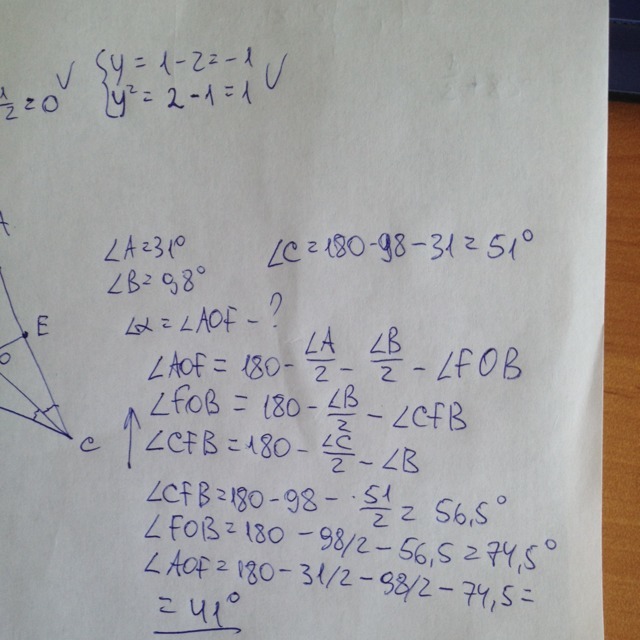 {y = 1-2 = -1 √
1/2 = 0 √ {y² = 2-1 = 1
A
∠A=31° ∠C=180-98-31=51°
∠B=98°
∠α=∠AOF-?
E
O
∠AOF= 180-∠A/2-∠B/2-∠FOB
∠FOB = 180-∠B/2-∠CFB
C
∠CFB=180-∠C/2-∠B
∠CFB=180-98-51/2= 56,5°
∠FOB=180-98/2-56,5=74,5°
∠AOF=180-31/2-98/2-74,5=
= 41°